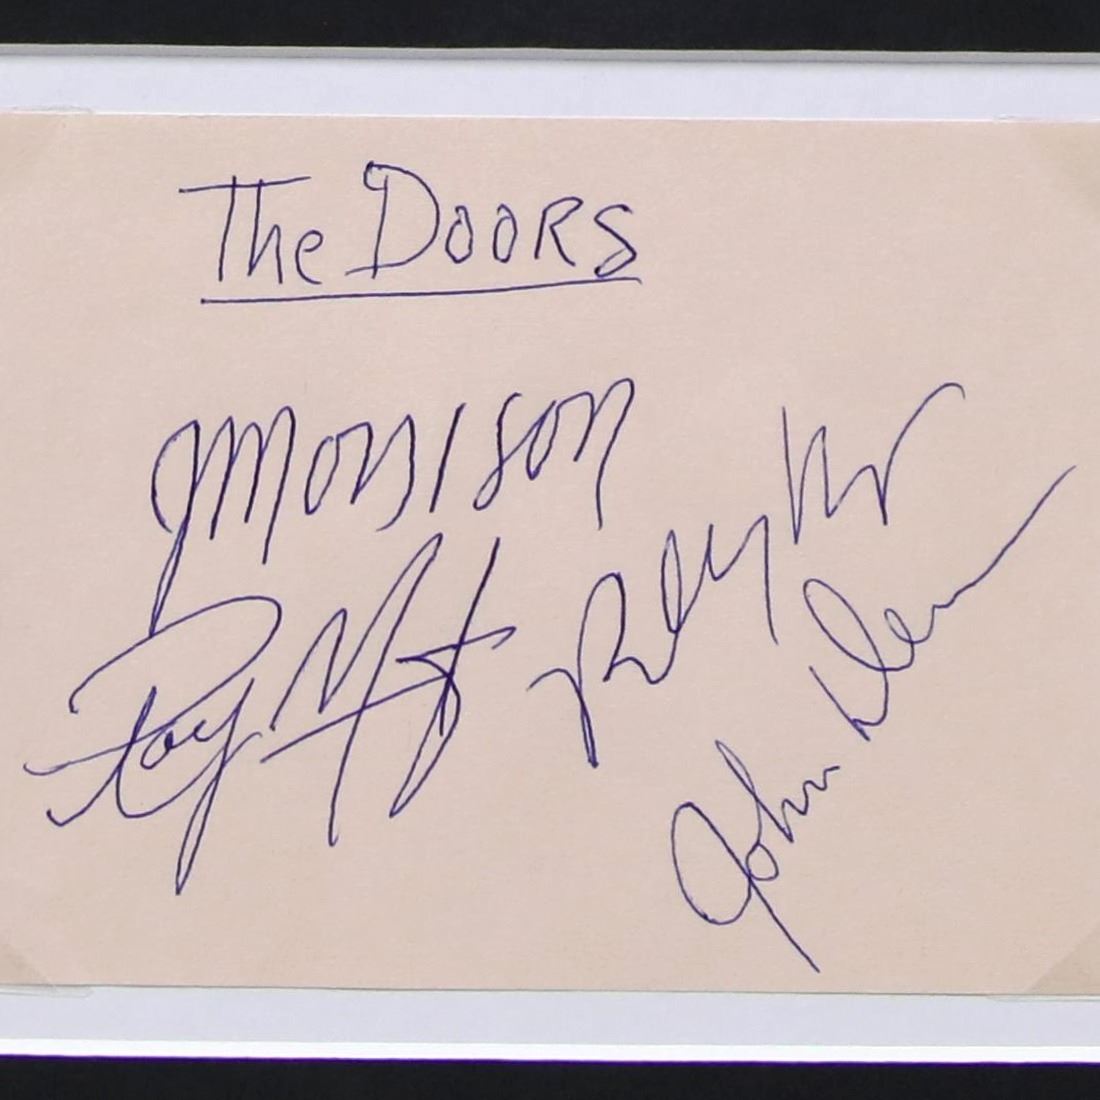 The Doors
JMorrison
Ray M
Robby K
John Den